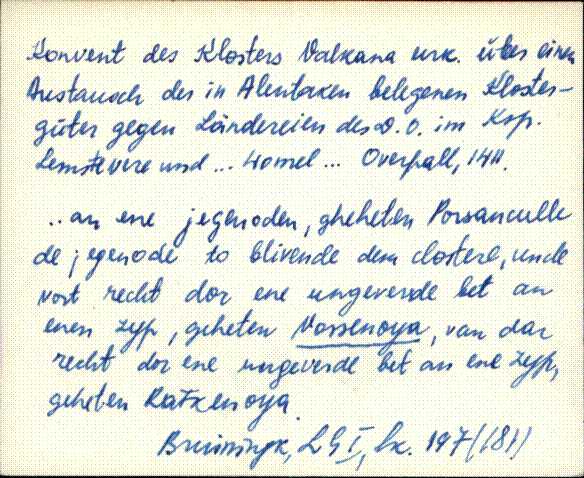 Konvent des Klosters Valkana urk. über einen
Austausch der in Alentaken belegenen Kloster-
güter gegen Ländereien des D.O. im Ksp.
und ... Womel ... Overpall, 1411.
.. an ene jegenoden, gheheten Porsanculle
de jegenode to blivende dem clostere, unde
vort recht dor ene ungeverde bet an
enen zyp, geheten Vossenoya, van dar
recht dor ene ungeverde bet an ene zyp,
geheten Ratkenoya.
Bruiningk, LG I, lk. 197 (181)